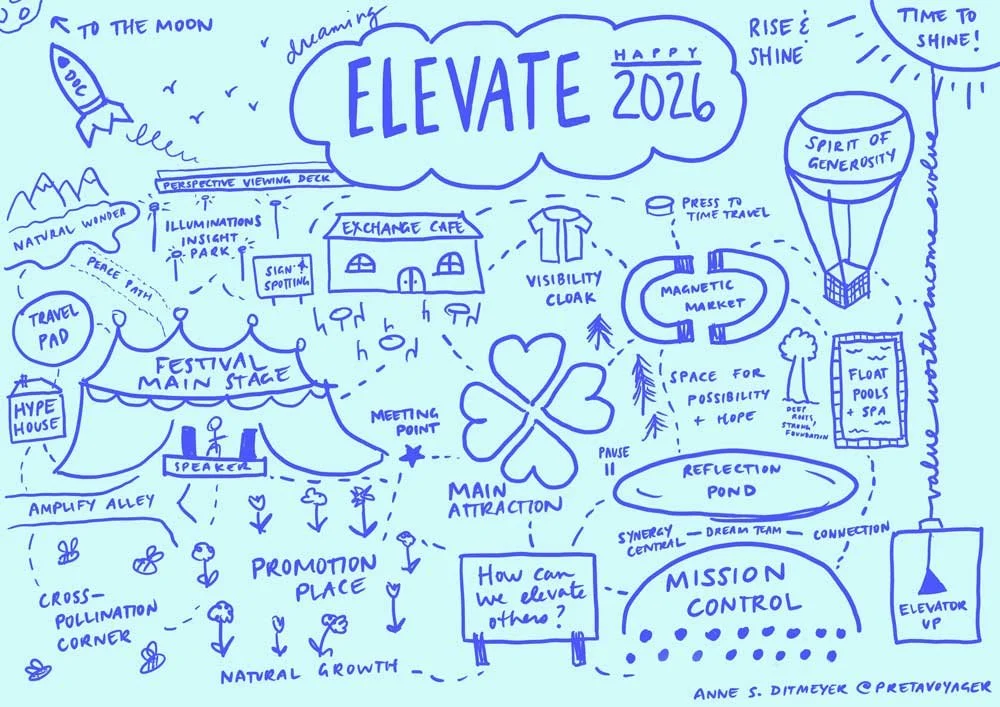 TO THE MOON
dreaming
ELEVATE
HAPPY
2026
RISE &
SHINE
TIME TO
SHINE!
DOC
SPIRIT OF
GENEROSITY
PERSPECTIVE VIEWING DECK
NATURAL WONDER
ILLUMINATIONS
INSIGHT
PARK
PEACE PATH
SIGN +
SPOTTING
EXCHANGE CAFE
VISIBILITY
CLOAK
PRESS TO
TIME TRAVEL
MAGNETIC
MARKET
TRAVEL
PAD
FESTIVAL
MAIN STAGE
HYPE
HOUSE
SPEAKER
MEETING
POINT
SPACE FOR
POSSIBILITY
+ HOPE
DEEP
ROOTS,
STRONG
FOUNDATION
FLOAT
POOLS
+ SPA
value worth income evolve
PAUSE
REFLECTION
POND
MAIN
ATTRACTION
AMPLIFY ALLEY
SYNERGY
CENTRAL — DREAM TEAM — CONNECTION
PROMOTION
PLACE
CROSS-
POLLINATION
CORNER
How can
we elevate
others?
MISSION
CONTROL
ELEVATOR
UP
NATURAL GROWTH
ANNE S. DITMEYER @PRETAVOYAGER